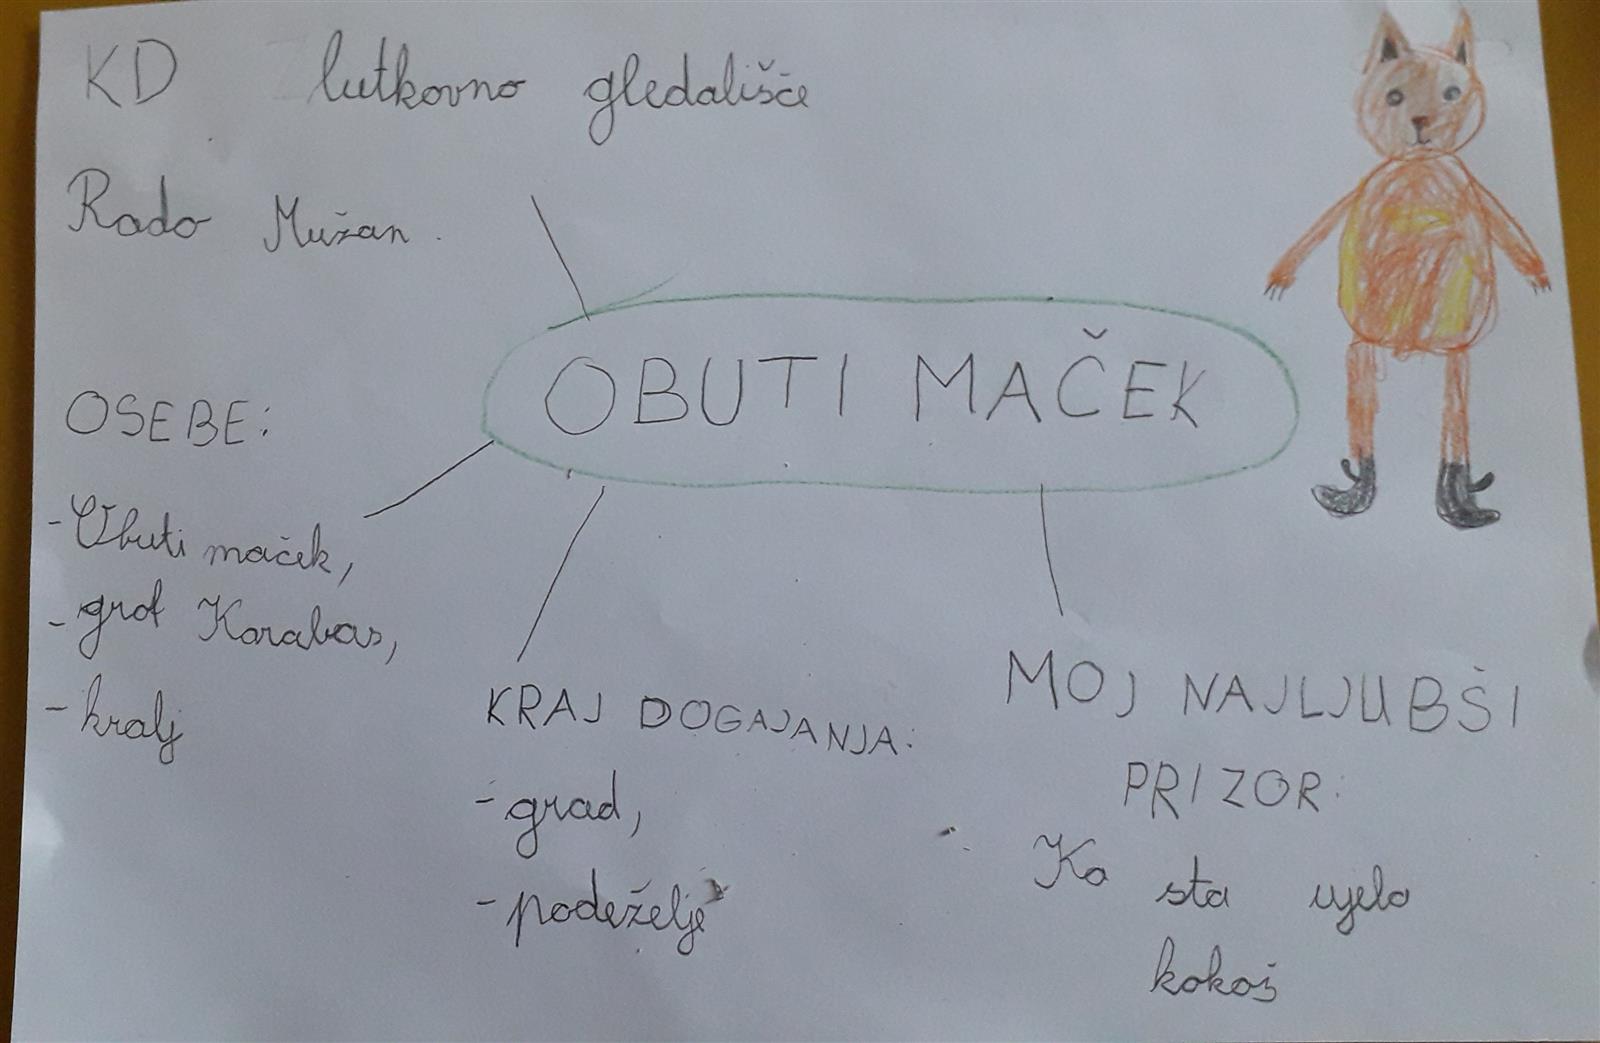 KD lutkovno gledališče
Rado Mužan.
OBUTI MAČEK
OSEBE:
- Obuti maček,
- grof Karabas,
- kralj
KRAJ DOGAJANJA:
- grad,
- podeželje
MOJ NAJLJUBŠI
PRIZOR:
Ko sta ujela
kokoš